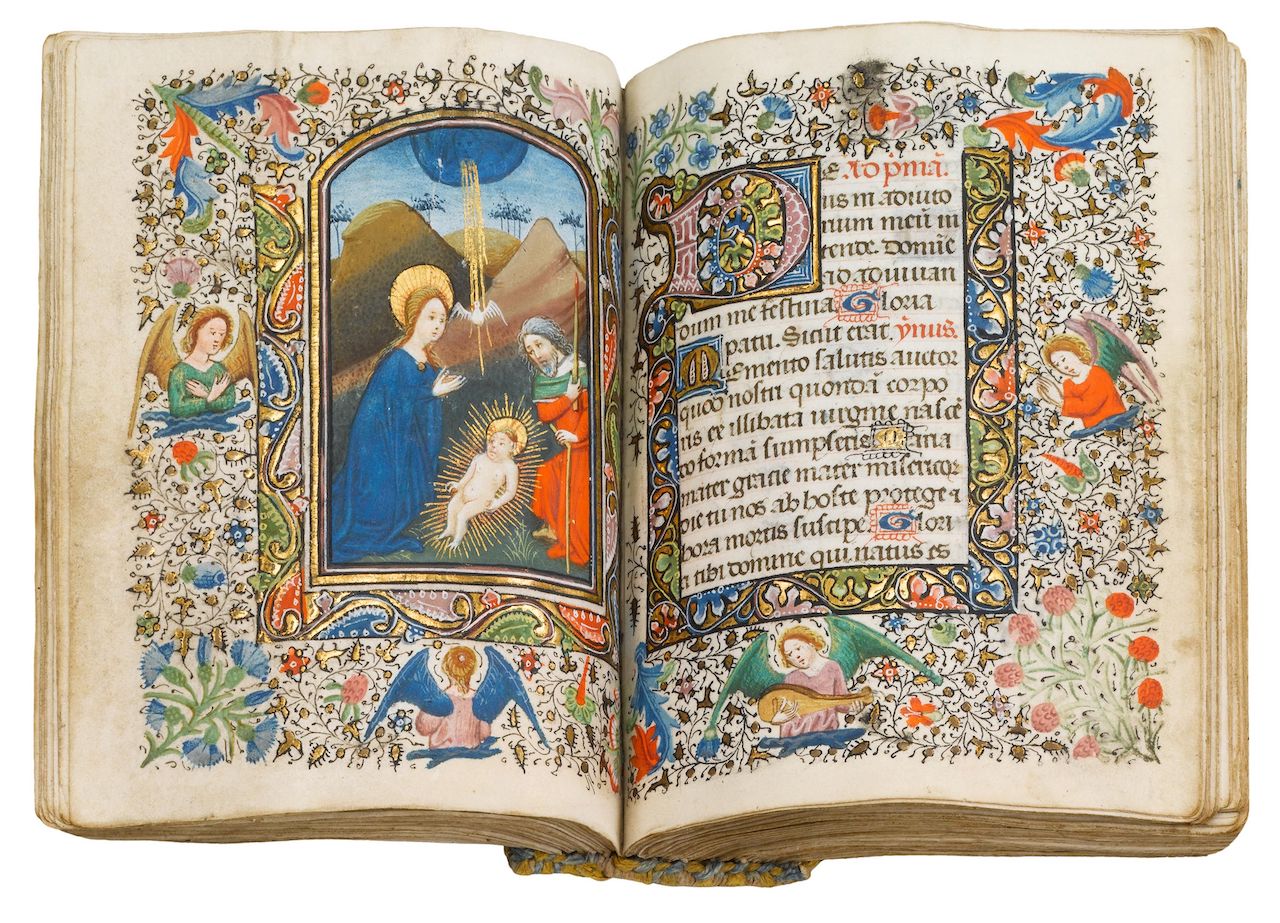 DE Ad p̄mā.
us in adiuto
rium meū in
tende. domine
ad adiuuan
dum me festina Gloria
patri. Sicut erat. ymnus.
Memento salutis auctor
quoq̄ nostri quondā corpo
ris ex illibata uirgine nasce
do formā sumpseris Maria
mater gracie mater misericor
die tu nos ab hoste protege ⁊
hora mortis suscipe Glori
a tibi domine qui natus es